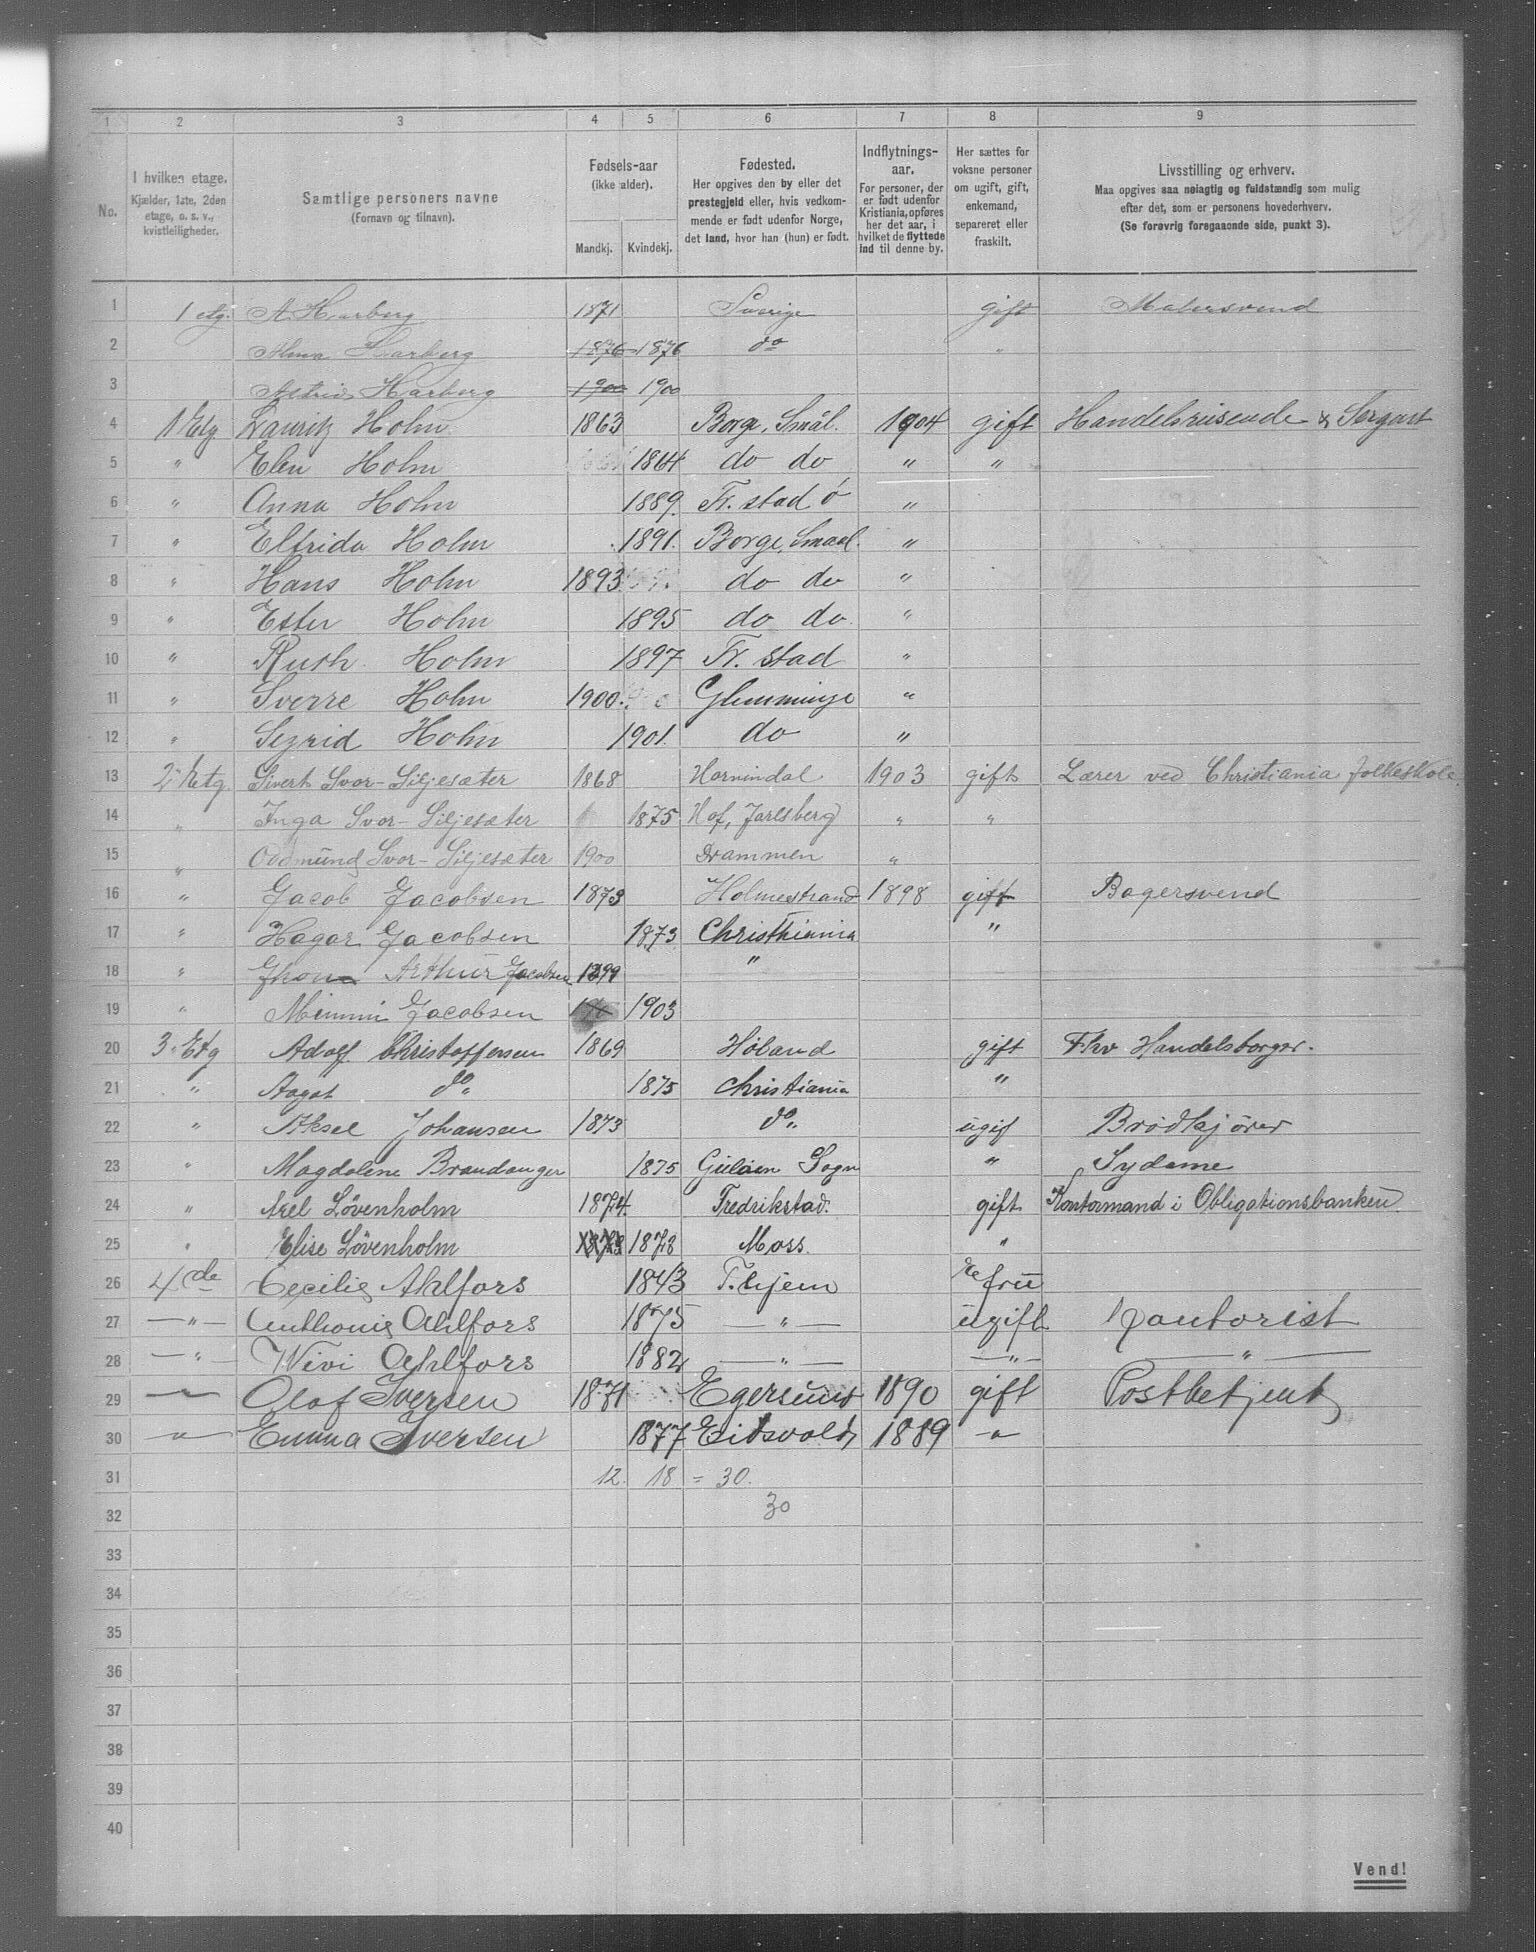 1 2 3 4 5 6 7 8 9
No.
I hvilken etage.
Kjælder, 1ste, 2den
etage, o. s. v.,
kvistleiligheder.
Samtlige personers navne
(Fornavn og tilnavn).
Fødsels-aar
(ikke alder).
Mandkj. Kvindekj.
Fødested.
Her opgives den by eller det
prestegjeld eller, hvis vedkom-
mende er født udenfor Norge,
det land, hvor han (hun) er født.
Indflytnings-
aar.
For personer, der
er født udenfor
Kristiania, opføres
her det aar, i
hvilket de flyttede
ind til denne by.
Her sættes for
voksne personer
om ugift, gift,
enkemand,
separeret eller
fraskilt.
Livsstilling og erhverv.
Maa opgives saa nøiagtig og fuldstændig som mulig
efter det, som er personens hovederhverv.
(Se forøvrig foregaaende side, punkt 3).
1 1 etg. A. Harberg 1871 Sverige gift Malersvend
2 Alma Harberg 1876 1876 do "
3 Astrid Harberg 1900 1900
4 1 Etg Lauritz Holm 1863 Borge, Smål. 1904 gift Handelsreisende & Sergant
5 " Elen Holm 1864 do do " "
6 " Anna Holm 1889. Fr. stad ó "
7 " Elfrida Holm 1891. Borge, Smaal. "
8 " Hans Holm 1893 do do "
9 " Ester Holm 1895 do do. "
10 " Ruth Holm 1897 Fr. stad "
11 " Sverre Holm 1900. Glemminge "
12 " Sigrid Holm 1901. do "
13 2 Etg. Sivert Svor-Siljesæter 1868 Hornindal 1903 gift Lærer ved Christiania folkeskole.
14 " Inga Svor-Siljesæter 1875 Hof, Jarlsberg " "
15 " Oddmund Svor-Siljesæter 1900 Drammen "
16 " Jacob Jacobsen 1873 Holmestrand 1898 gift Bagersvend
17 " Hagar Jacobsen 1873 Christhiania "
18 " Arthur Jacobsen 1899 "
19 " Mimmi Jacobsen 1903
20 3. Etg Adolf Christoffersen 1869 Høland gift Fhv Handelsborger.
21 " Aagot do " 1875 Christiania "
22 " Aksel Johansen 1873 do " ugift Brødkjører
23 " Magdalene Brandanger 1875 Gulaen Sogn " Sydame
24 " Axel Lövenholm 1874. Fredrikstad. gift Kontormand i Obligationsbanken.
25 " Elise Lövenholm 1878 1878 Moss. "
26 4 de Cecilie Ahlfors 1843 T. hjem frü
27 —"— Anthonie Ahlfors 1875 —"— ugift Kontorist
28 —"— Wivi Ahlfors 1882 —"— —"— —"—
29 —"— Olaf Iversen 1871 Egersund 1890 gift Postbetjent
30 —"— Emma Iversen 1877 Eidsvold, 1889 —"—
31 12. 18 = 30.
32 30
33
34
35
36
37
38
39
40
Vend!